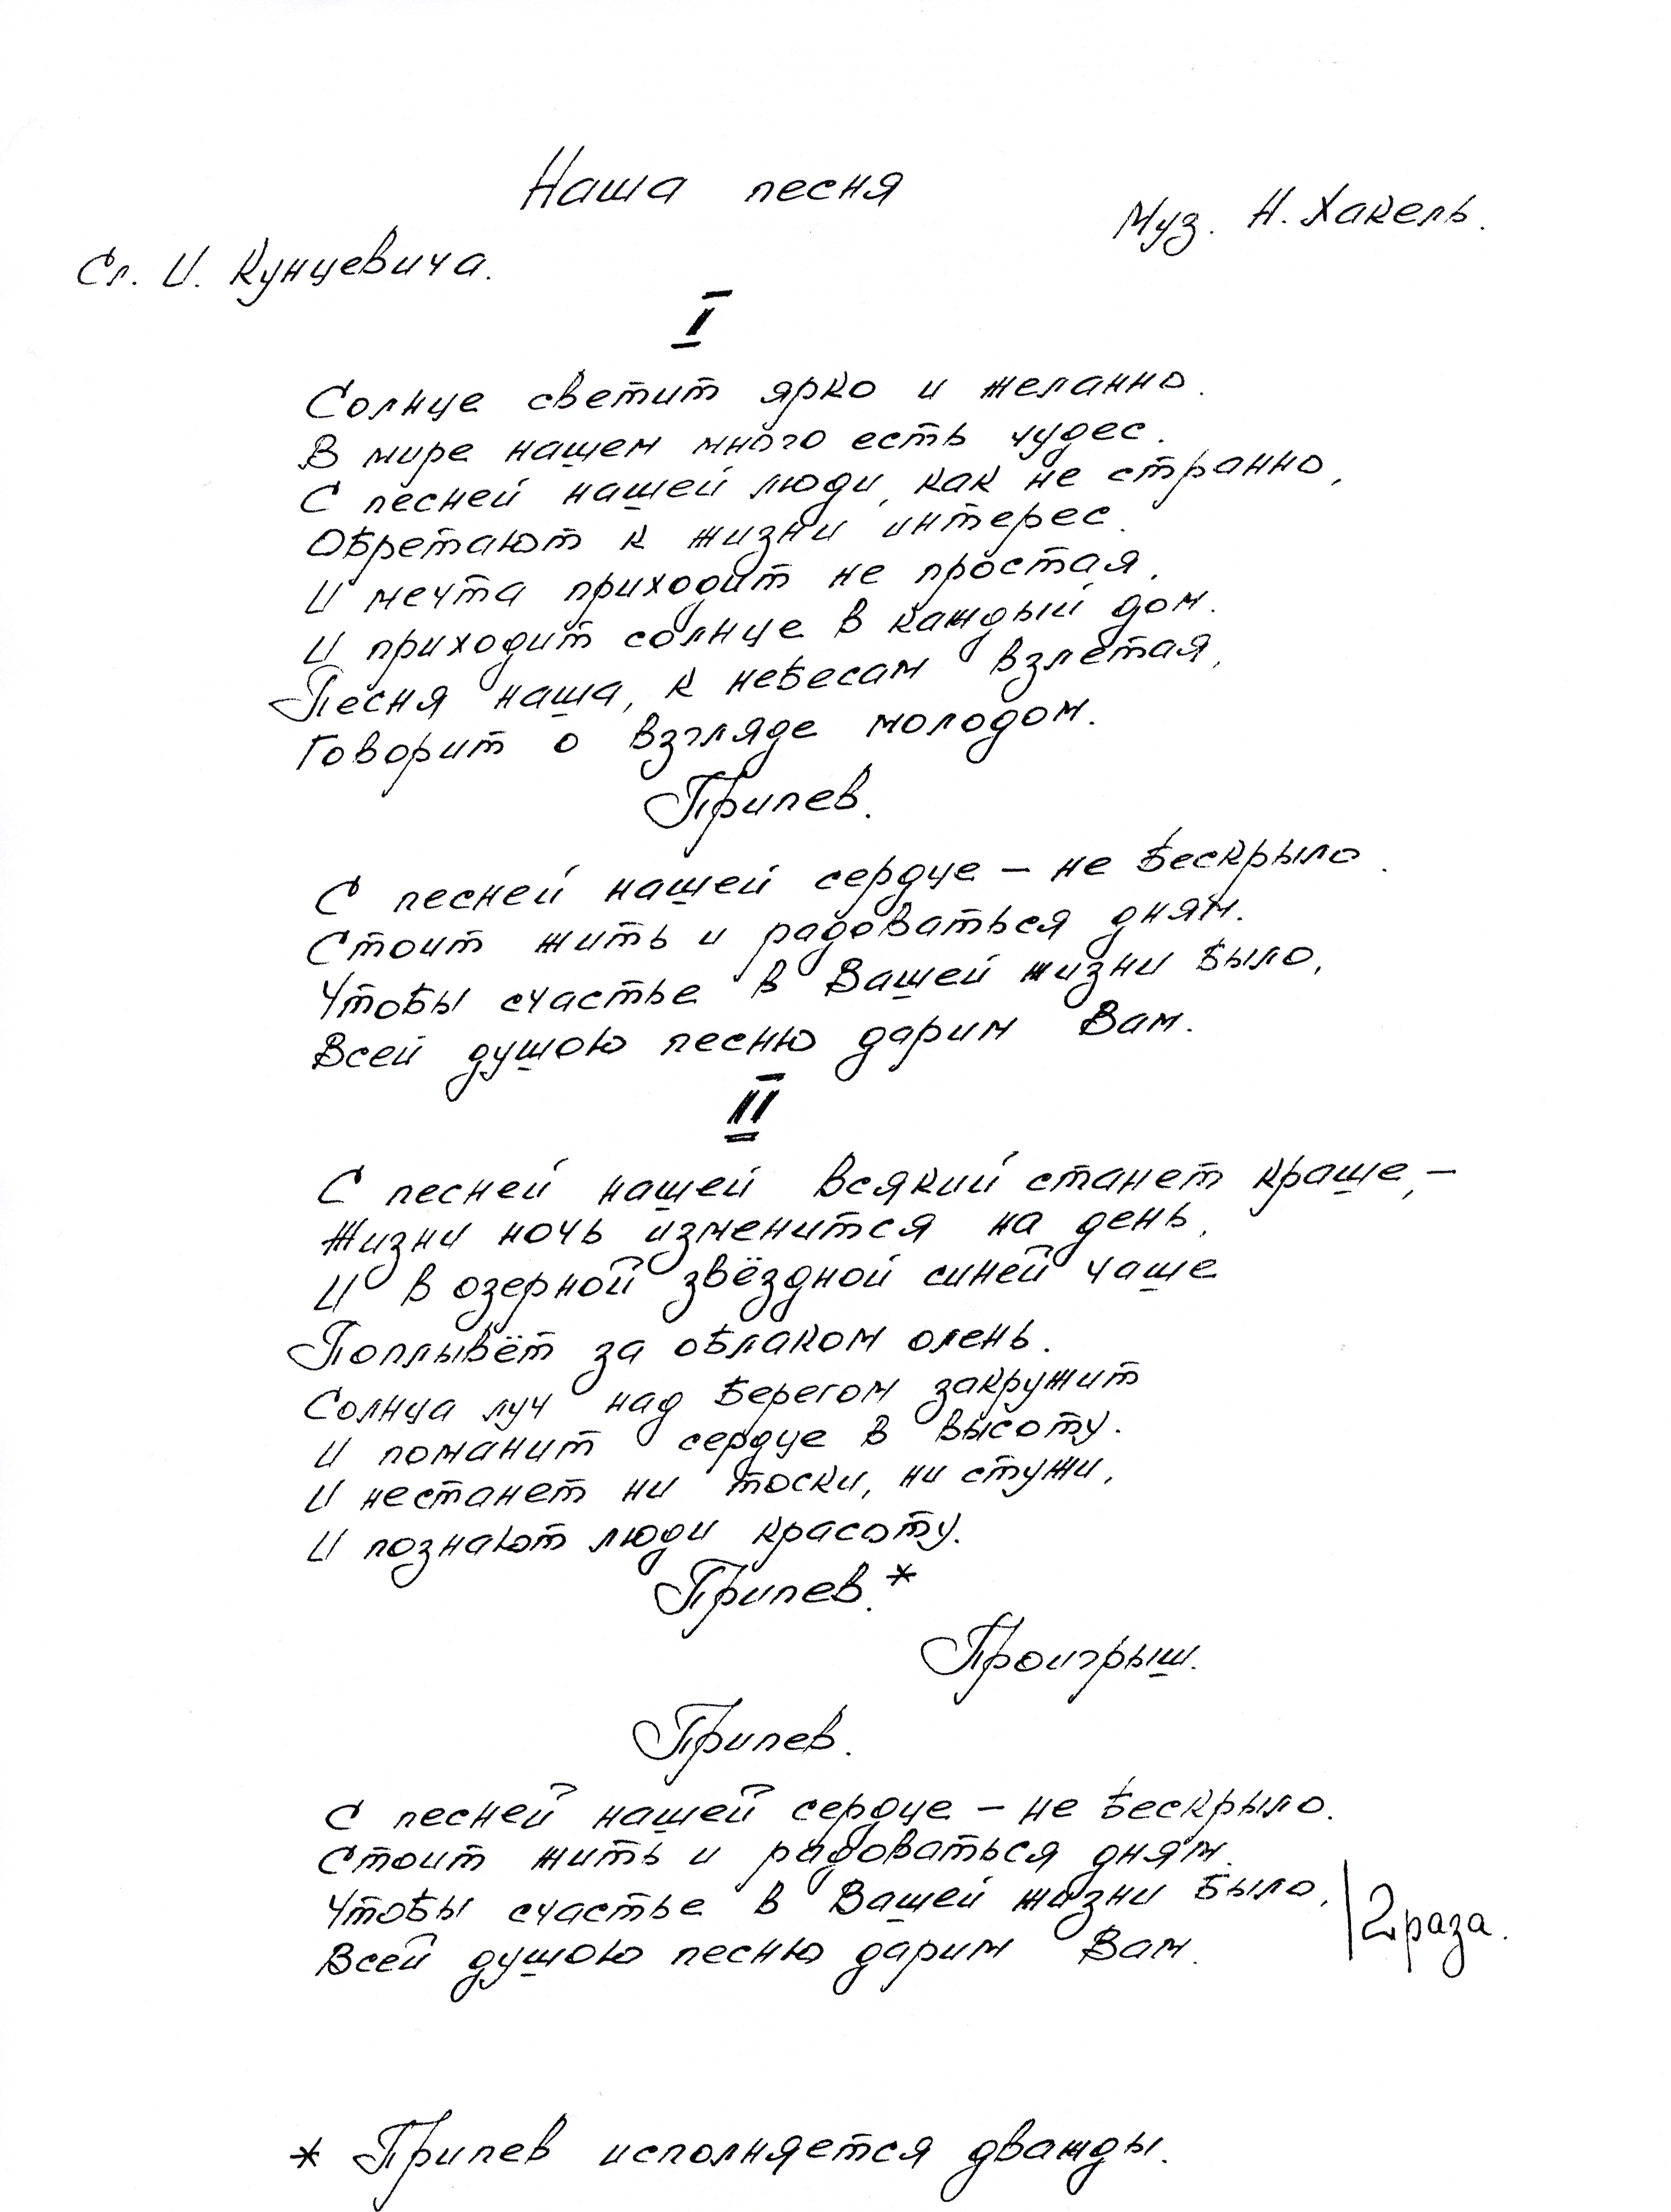 Наша песня
Муз. Н. Хакель.
Сл. И. Кунцевича.
I
Солнце светит ярко и желанно.
В мире нашем много есть чудес.
С песней нашей люди, как не странно,
Обретают к жизни интерес.
И мечта приходит не простая,
И приходит солнце в каждый дом.
Песня наша, к небесам взлетая,
Говорит о взгляде молодом.
Припев.
С песней нашей сердце – не бескрыло.
Стоит жить и радоваться дням.
Чтобы счастье в Вашей жизни было,
Всей душою песню дарим Вам.
II
С песней нашей всякий станет краше, –
Жизни ночь изменится на день,
И в озерной звёздной синей чаше
Поплывёт за облаком олень.
Солнца луч над берегом закружит
И поманит сердце в высоту.
И нестанет ни тоски, ни стужи,
И познают люди красоту.
Припев.*
Проигрыш.
Припев.
С песней нашей сердце – не бескрыло.
Стоит жить и радоваться дням.
Чтобы счастье в Вашей жизни было,
Всей душою песню дарим Вам.
2 раза.
* Припев исполняется дважды.